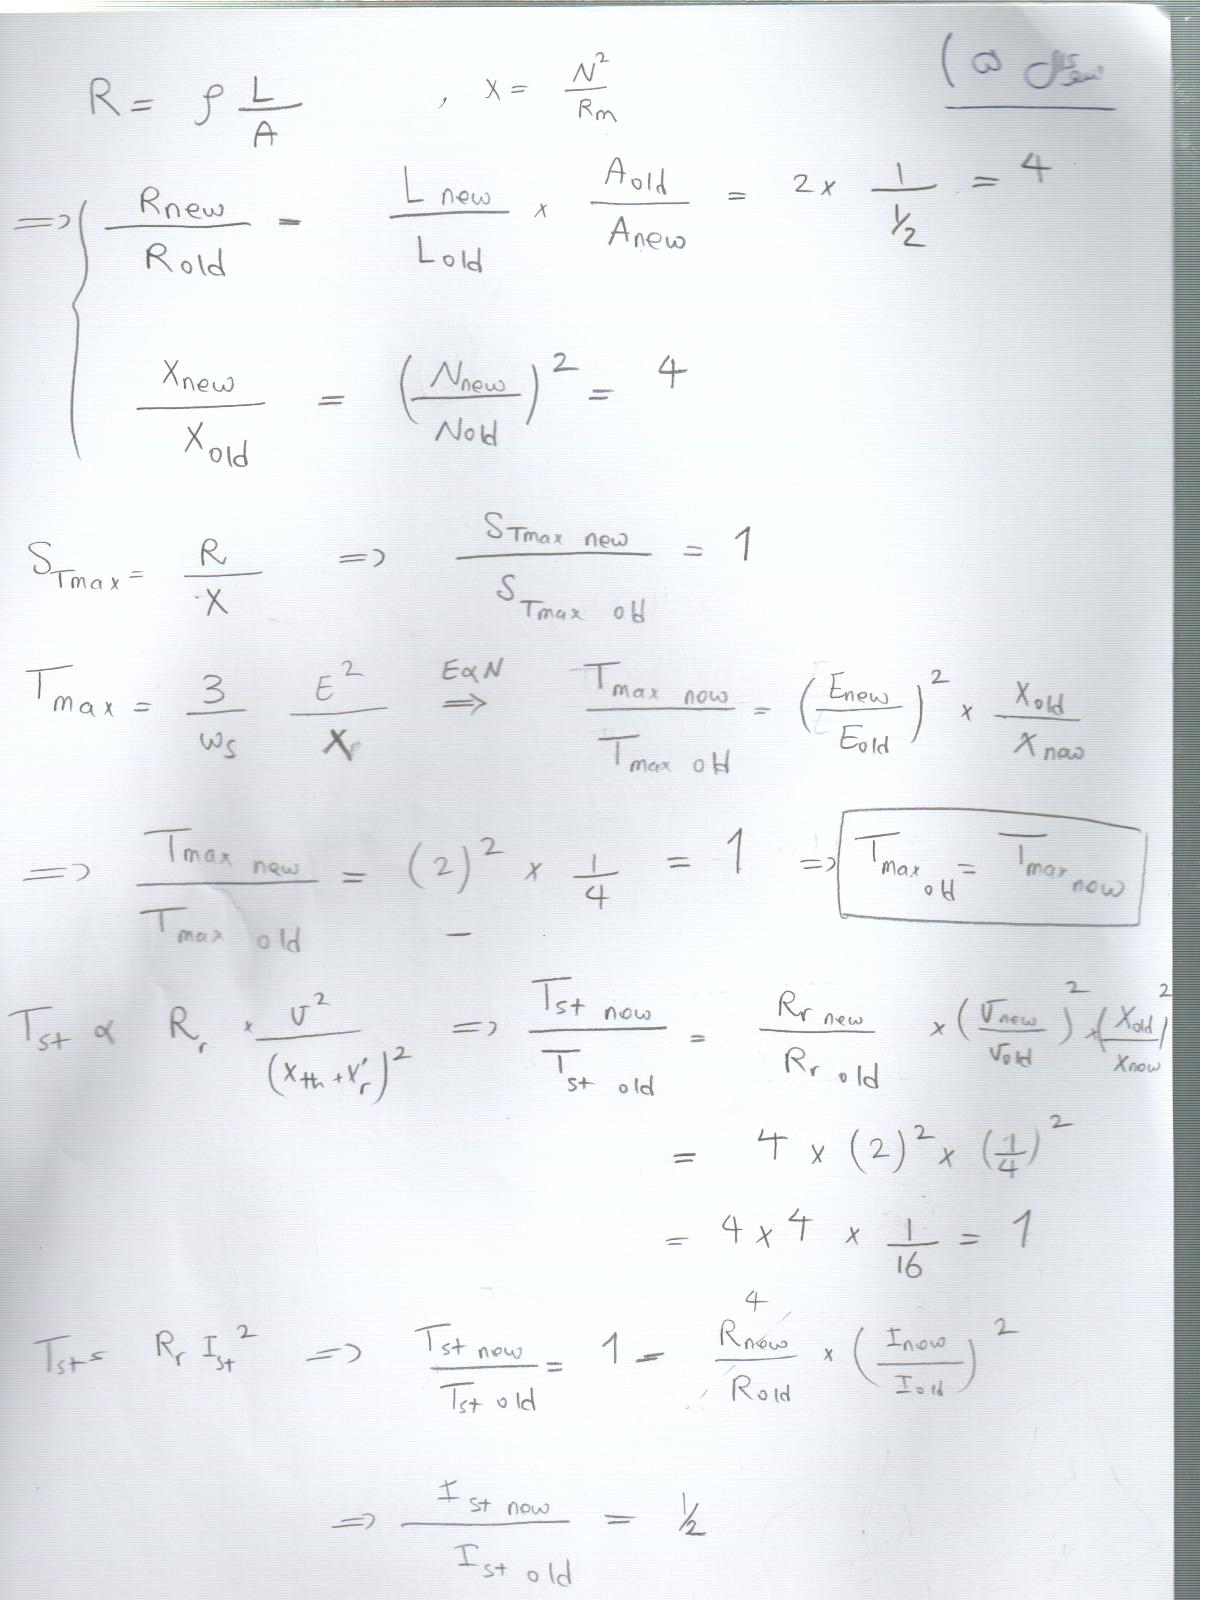 سوال ۵ )
R = ρ L/A , X = N²/Rm
⇒ { Rnew/Rold = Lnew/Lold × Aold/Anew = 2 × 1/½ = 4
Xnew/Xold = (Nnew/Nold)² = 4
STmax = R/X ⇒ STmax new/STmax old = 1
Tmax = 3/ws E²/Xr E∝N ⇒ Tmax new/Tmax old = (Enew/Eold)² × Xold/Xnew
⇒ Tmax new/Tmax old = (2)² × 1/4 = 1 ⇒ Tmax old = Tmax new
Tst ∝ Rr × V²/(Xth + X'r)² ⇒ Tst new/Tst old = Rr new/Rr old × (Vnew/Vold)² × (Xold/Xnew)²
= 4 × (2)² × (1/4)²
= 4 × 4 × 1/16 = 1
Tst = Rr Ist² ⇒ Tst new/Tst old = 1 = 4 Rnew/Rold × (Inew/Iold)²
⇒ Ist new/Ist old = ½